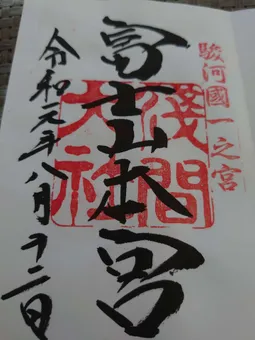 駿河國一之宮
冨士山本宮
浅間大社
令和元年八月十二日